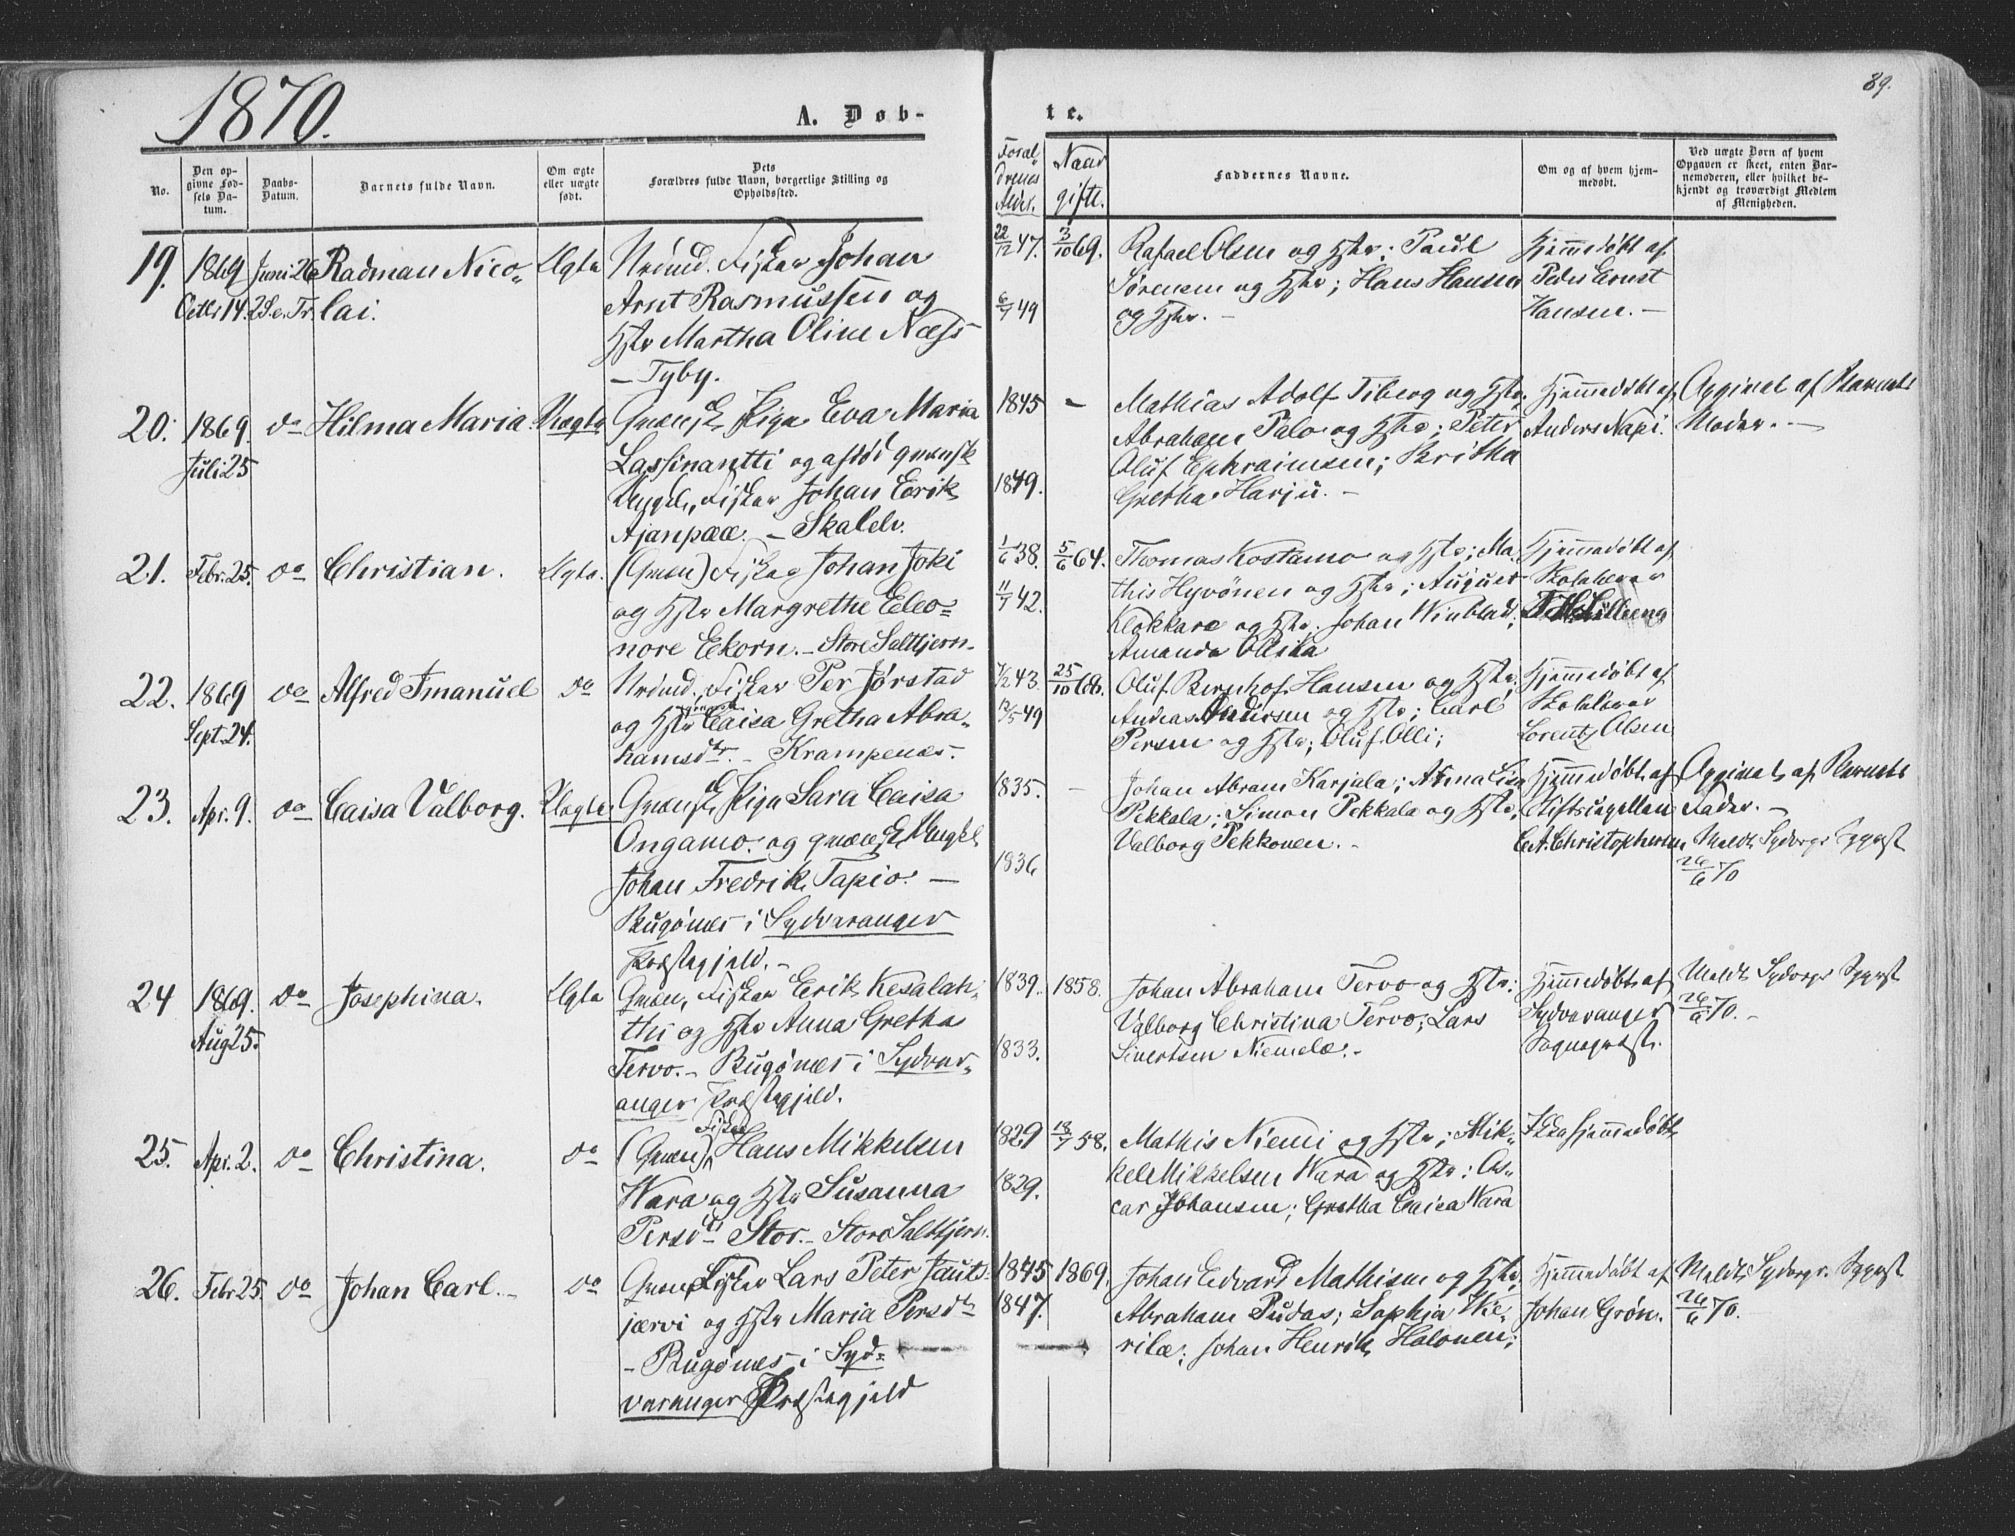 1870.
89.
A. Døb-
te.
No.
Den op-
givne Fød-
sels Da-
tum.
Daabs-
Datum.
Barnets fulde Navn.
Om ægte
eller uægte
født.
Dets
Forældres fulde Navn, borgerlige Stilling og
Opholdssted.
Foræl-
drenes
Alder.
Naar
gifte.
Faddernes Navne.
Om og af hvem hjem-
medøbt.
Ved uægte Børn af hvem
Opgaven er skeet, enten Bar-
nemoderen, eller hvilket be-
kjendt og troværdigt Medlem
af Menigheden.
19. 1869 Juni 26 Radman Nico- Ægte
Octbr 14. 2 S. e. Tr. lai.
Fisker Johan
Arnt Rasmussen og
Hstr Martha Oline Næss
– Tyby.
22/12 47. 3/10 69.
6/7 49
Rafael Olsen og Hstr; Paul
Sørensen og Hstr; Hans Hansen
og Hstr. –
Hjemmedøbt af
Peder Ernst
Hansen. –
20. 1869. do Hilma Maria. Uægte
Juli 25
Qvænsk Pige Eva Maria
Lassinantti og afdød qvænsk
Ungk., Fisker Johan Eerik
Ajanpææ. – Skalelv.
1845 –
1849.
Mathias Adolf Tiberg og Hstr,
Abraham Palo og Hstr; Peter
Oluf Ephraimsen; Britha
Gretha Harju. –
Hjemmedøbt af
Anders Napi.
Opgivet af Barnets
Moder. –
21. Febr. 25. do Christian. Ægte.
(Qvæn) Fisker Johan Joki
og Hstr Margrethe Eleo-
nore Ekorn. – Store Saltjern.
1/6 38. 5/6 64.
11/7 42.
Thomas Kostamo og Hstr; Ma-
this Hyvönen og Hstr; August
Klokkare og Hstr. Johan Winblad;
Amanda Ollila
Hjemmedøbt af
Skolelærer
22. 1869 do Alfred Imanuel do
Sept. 24.
Fisker Per Jørstad
og Hstr Caisa Gretha Abra-
hamsdtr. – Krampenæs.
7/12 43. 25/10 68.
12/5 49
Oluf Bernhof Hansen og Hstr;
Andreas Andersen og Hstr; Carl
Persen og Hstr; Oluf Olli;
Hjemmedøbt af
Skolelærer
Lorentz Olsen
23. Apr. 9. do Caisa Valborg. Uægte
Qvænsk Pige Sara Caisa
Ongamo og qvænsk Ungk.
Johan Fredrik Tapio. –
Bugønæs i Sydvaranger
Præstegjeld. –
1835. –
1836
Johan Abram Karjala; Anna Lisa
Pekkala; Simon Pekkala og Hstr;
Valborg Pekkonen. –
Hjemmedøbt af
Stiftscapellan
C. A. Christophersen
Opgivet af Barnets
Fader. –
Meldt Sydvrgr Sgprst
26/6 70
24 1869. do Josephina. Ægte
Aug 25.
Qvæn, Fisker Erik Kesalah-
thi og Hstr Anna Gretha
Tervo. – Bugønæs i Sydvar-
anger Præstegjeld.
1839. 1858.
1833.
Johan Abraham Tervo og Hstr;
Valborg Christina Tervo; Lars
Sivertsen Niemelæ. –
Hjemmedøbt af
Sydvaranger
Sognepræst.
Meldt Sydvrgr Sgprst
26/6 70. –
25. Apr. 2. do Christina. do
Fisker
(Qvæn) Hans Mikkelsen
Wara og Hstr Susanna
Persdtr Stor. – Store Saltjern.
1829 18/7 58.
1829.
Mathis Niemi og Hstr; Mik-
kel Mikkelsen Wara og Hstr: Os-
car Johansen; Gretha Caisa Wara
Ikke hjemmedøbt
26. Febr 25. do Johan Carl. – do
Qvæn Fisker Lars Peter Jauts-
jærvi og Hstr Maria Persdtr
– Bugønæs i Syd-
varanger Præstegjeld
1845 1869.
1847.
Johan Edvard Mathisen og Hstr.
Abraham Pudas; Sophia Wie-
rilæ; Johan Henrik Halonen;
Hjemmedøbt af
Johan Grøn.
Meldt Sydvrgr. Sgprst
26/6 70.